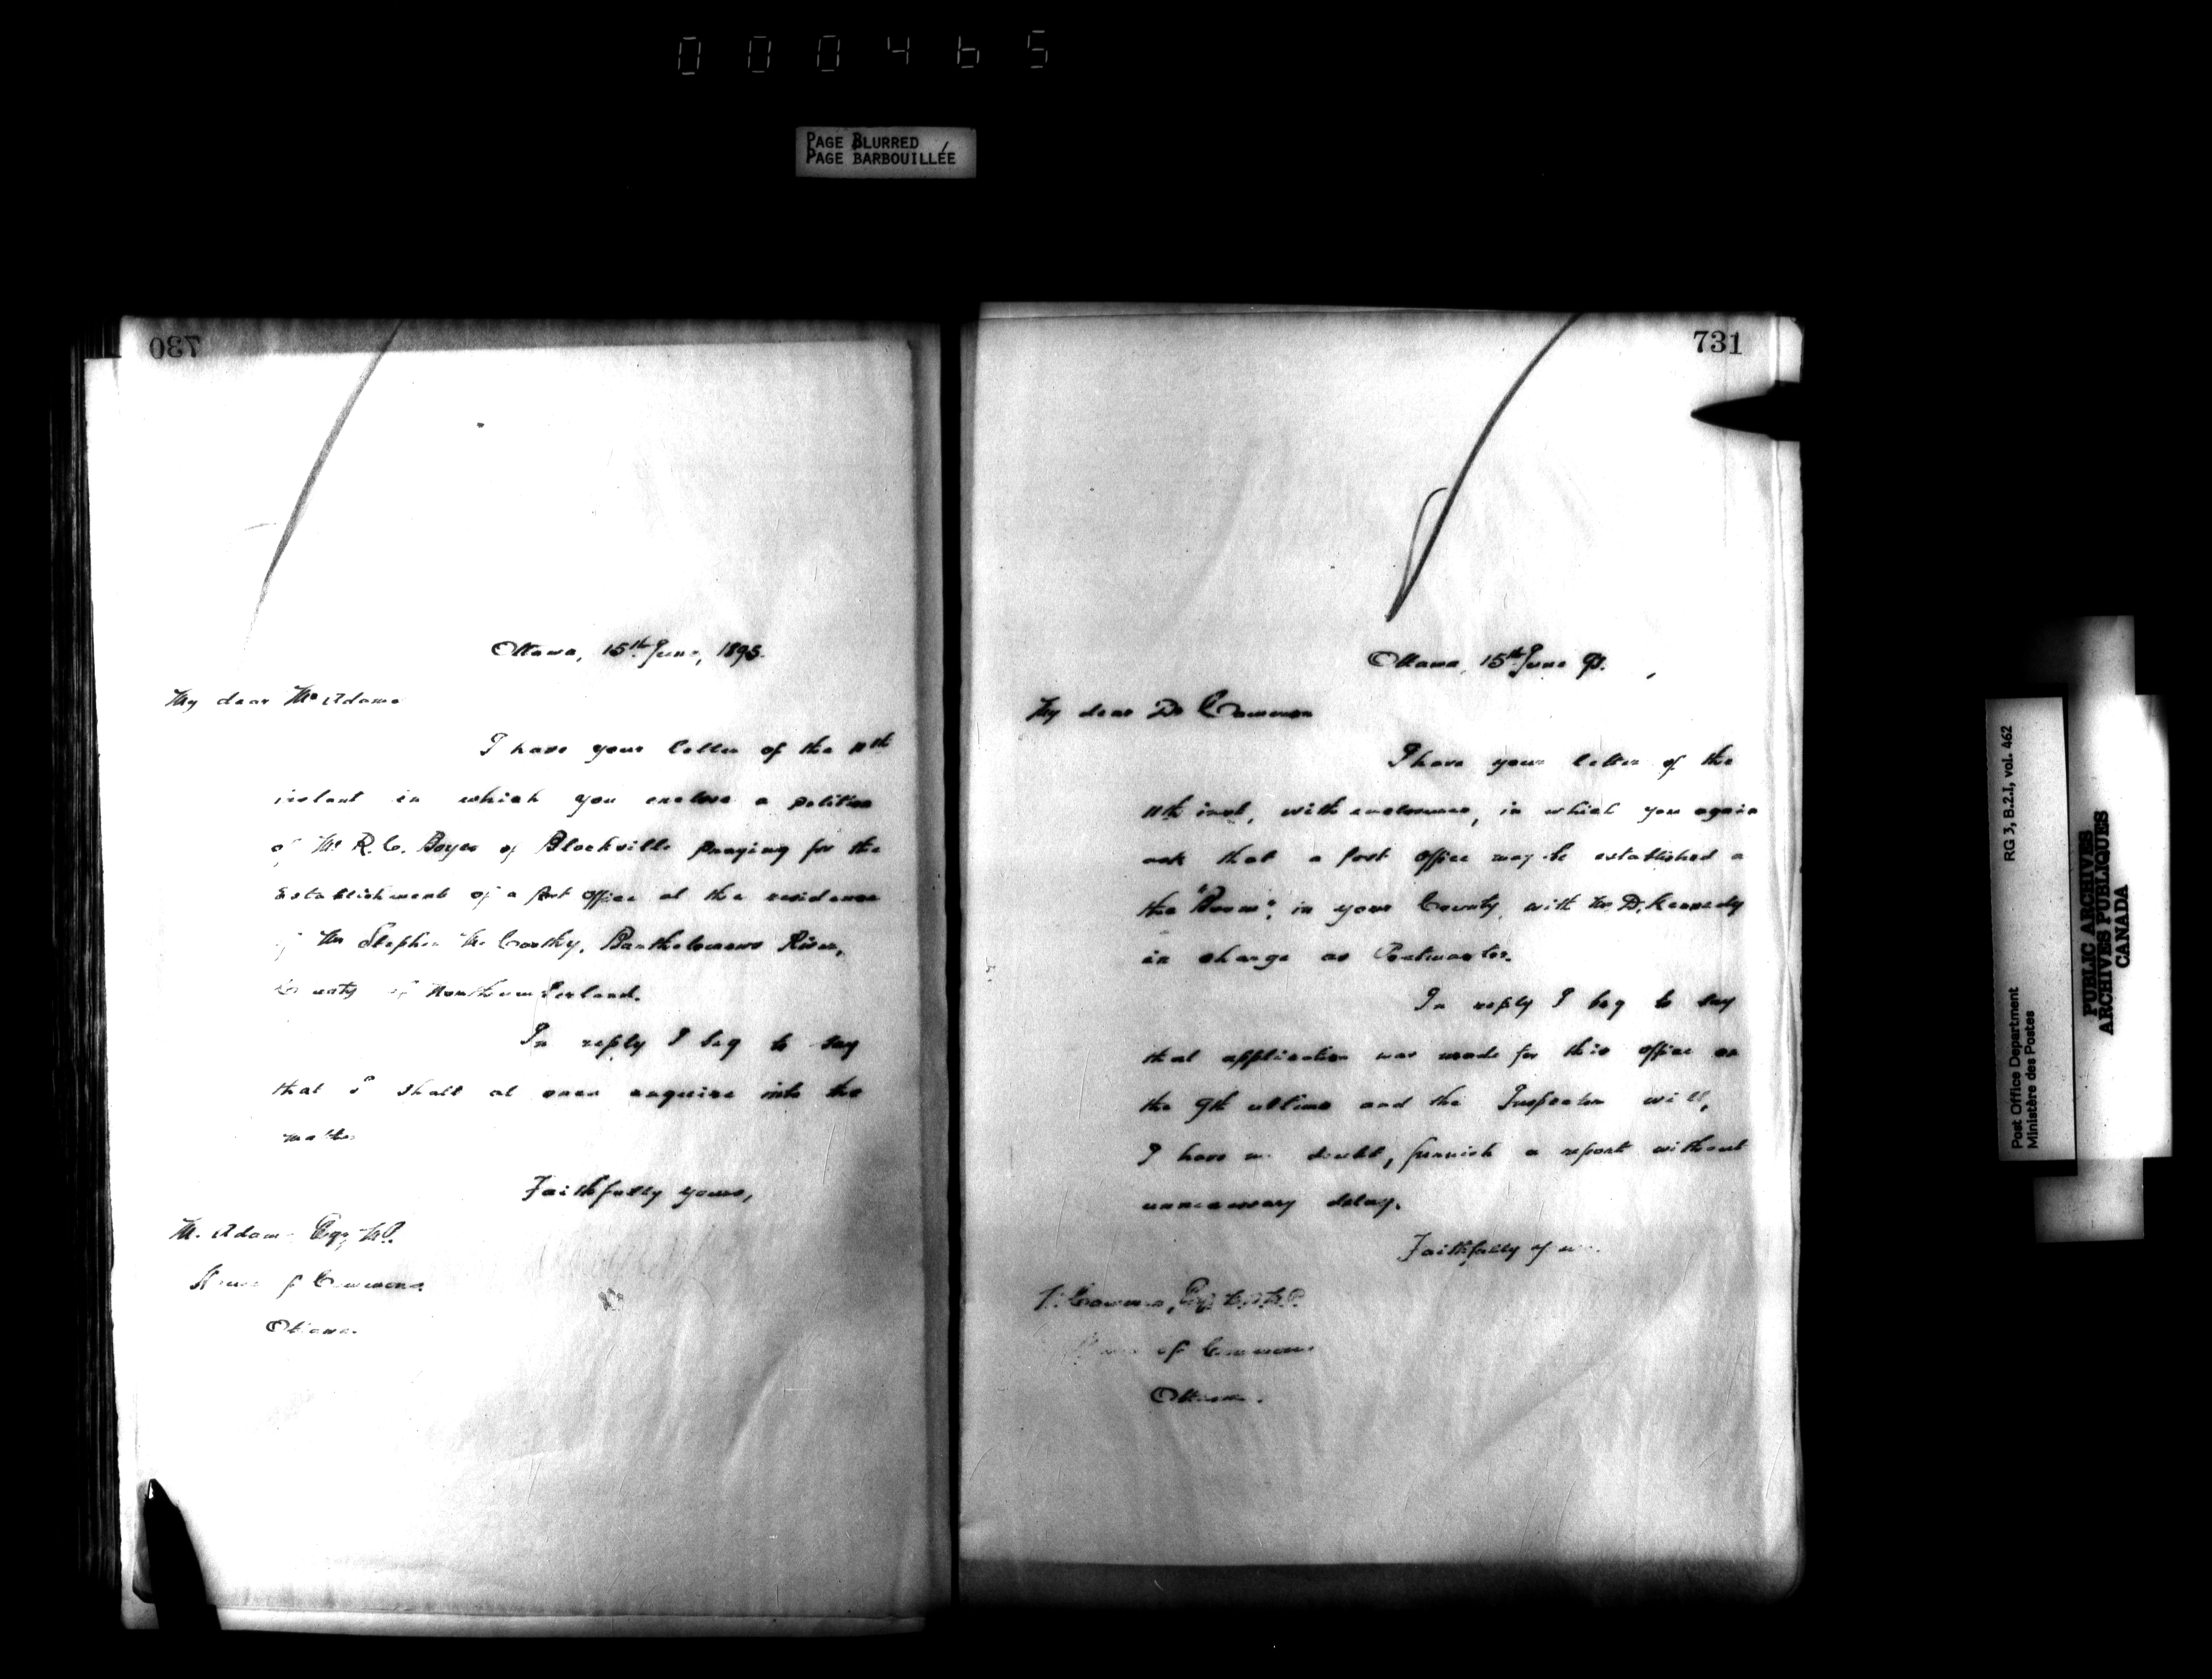 000465
PAGE BLURRED
PAGE BARBOUILLÉE
730
Ottawa, 15th June, 1895.
My dear Mr Adams
I have your letter of the 11th
instant in which you enclose a petition
of Mr R. C. Boyes of Blackville praying for the
establishment of a Post Office at the residence
of Mr Stephen McCarthy, Bartholomews River,
County of Northumberland.
In reply I beg to say
that I shall at once enquire into the
matter
Faithfully yours,
M. Adams Esq, M.P.
House of Commons
Ottawa.
731
Ottawa, 15th June
My dear Dr Cameron
I have your letter of the
11th inst, with enclosures, in which you again
ask that a Post Office may be established a
the "Boom", in your County, with Mr D. Kennedy
in charge as Postmaster.
In reply I beg to say
that application was made for this office on
the 9th ultimo and the Inspector will,
I have no doubt, furnish a report without
unnecessary delay.
Faithfully yours.
Cameron, Esq, M.P.
House of Commons
Ottawa.
Post Office Department
Ministère des Postes
RG 3, B.2.I, vol. 462
PUBLIC ARCHIVES
ARCHIVES PUBLIQUES
CANADA